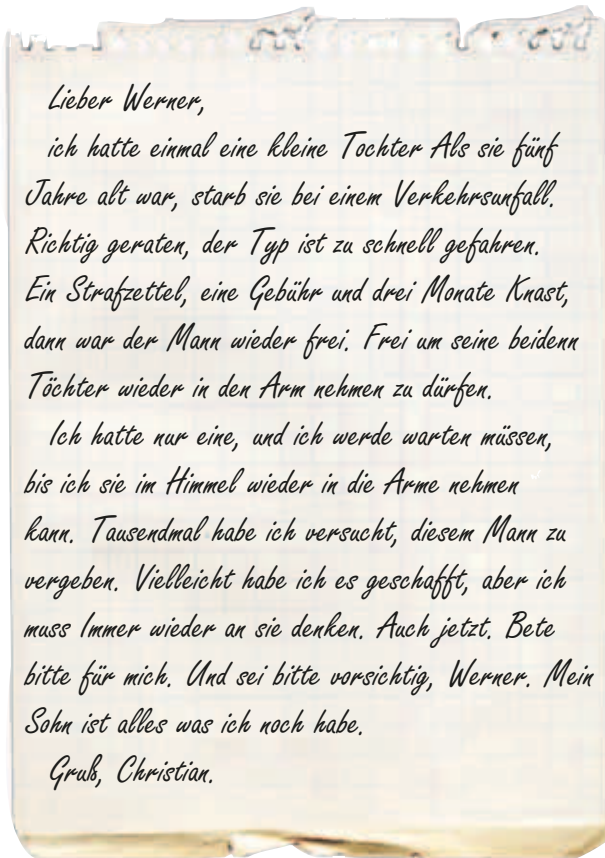 Lieber Werner,
ich hatte einmal eine kleine Tochter Als sie fünf
Jahre alt war, starb sie bei einem Verkehrsunfall.
Richtig geraten, der Typ ist zu schnell gefahren.
Ein Strafzettel, eine Gebühr und drei Monate Knast,
dann war der Mann wieder frei. Frei um seine beidenn
Töchter wieder in den Arm nehmen zu dürfen.
Ich hatte nur eine, und ich werde warten müssen,
bis ich sie im Himmel wieder in die Arme nehmen
kann. Tausendmal habe ich versucht, diesem Mann zu
vergeben. Vielleicht habe ich es geschafft, aber ich
muss Immer wieder an sie denken. Auch jetzt. Bete
bitte für mich. Und sei bitte vorsichtig, Werner. Mein
Sohn ist alles was ich noch habe.
Gruß, Christian.